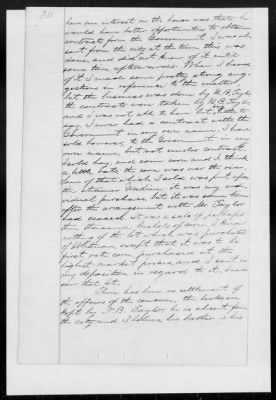 30
have an interest in the house was that he
would have better opportunities to obtain
contracts from the Government. I was ab-
sent from the city at the time this was
done, and did not know of it until
some time afterwards. When I heard
of it I made some pretty strong sug-
gestions in reference to the matter
but the business was done by H. B. Taylor
the contracts were taken by H. B. Taylor
and I was not able to have it
say. I never had a contract with the
Government in my own name. I have
sold however, to the Government in my
own name, but not under contract.
I sold hay, and some corn and I think
a little oats, the corn was over the river
some of that which I sold was put upon
the Steamer it was my indi-
vidual purchase but it was some time
after the arrangement with Mr. Taylor
had ceased. It was a sale of perhaps
ten thousand bushels of corn. I know
nothing of the lot which was purchased
of Whitman, except that it was to be
first rate corn, purchased at the
highest market prices, and I sent in
my deposition in regard to it. I never
saw that lot.
There has been no settlement of
the affairs of the concern, the books are
kept by H. B. Taylor, he is absent from
the city and I believe his brother is his